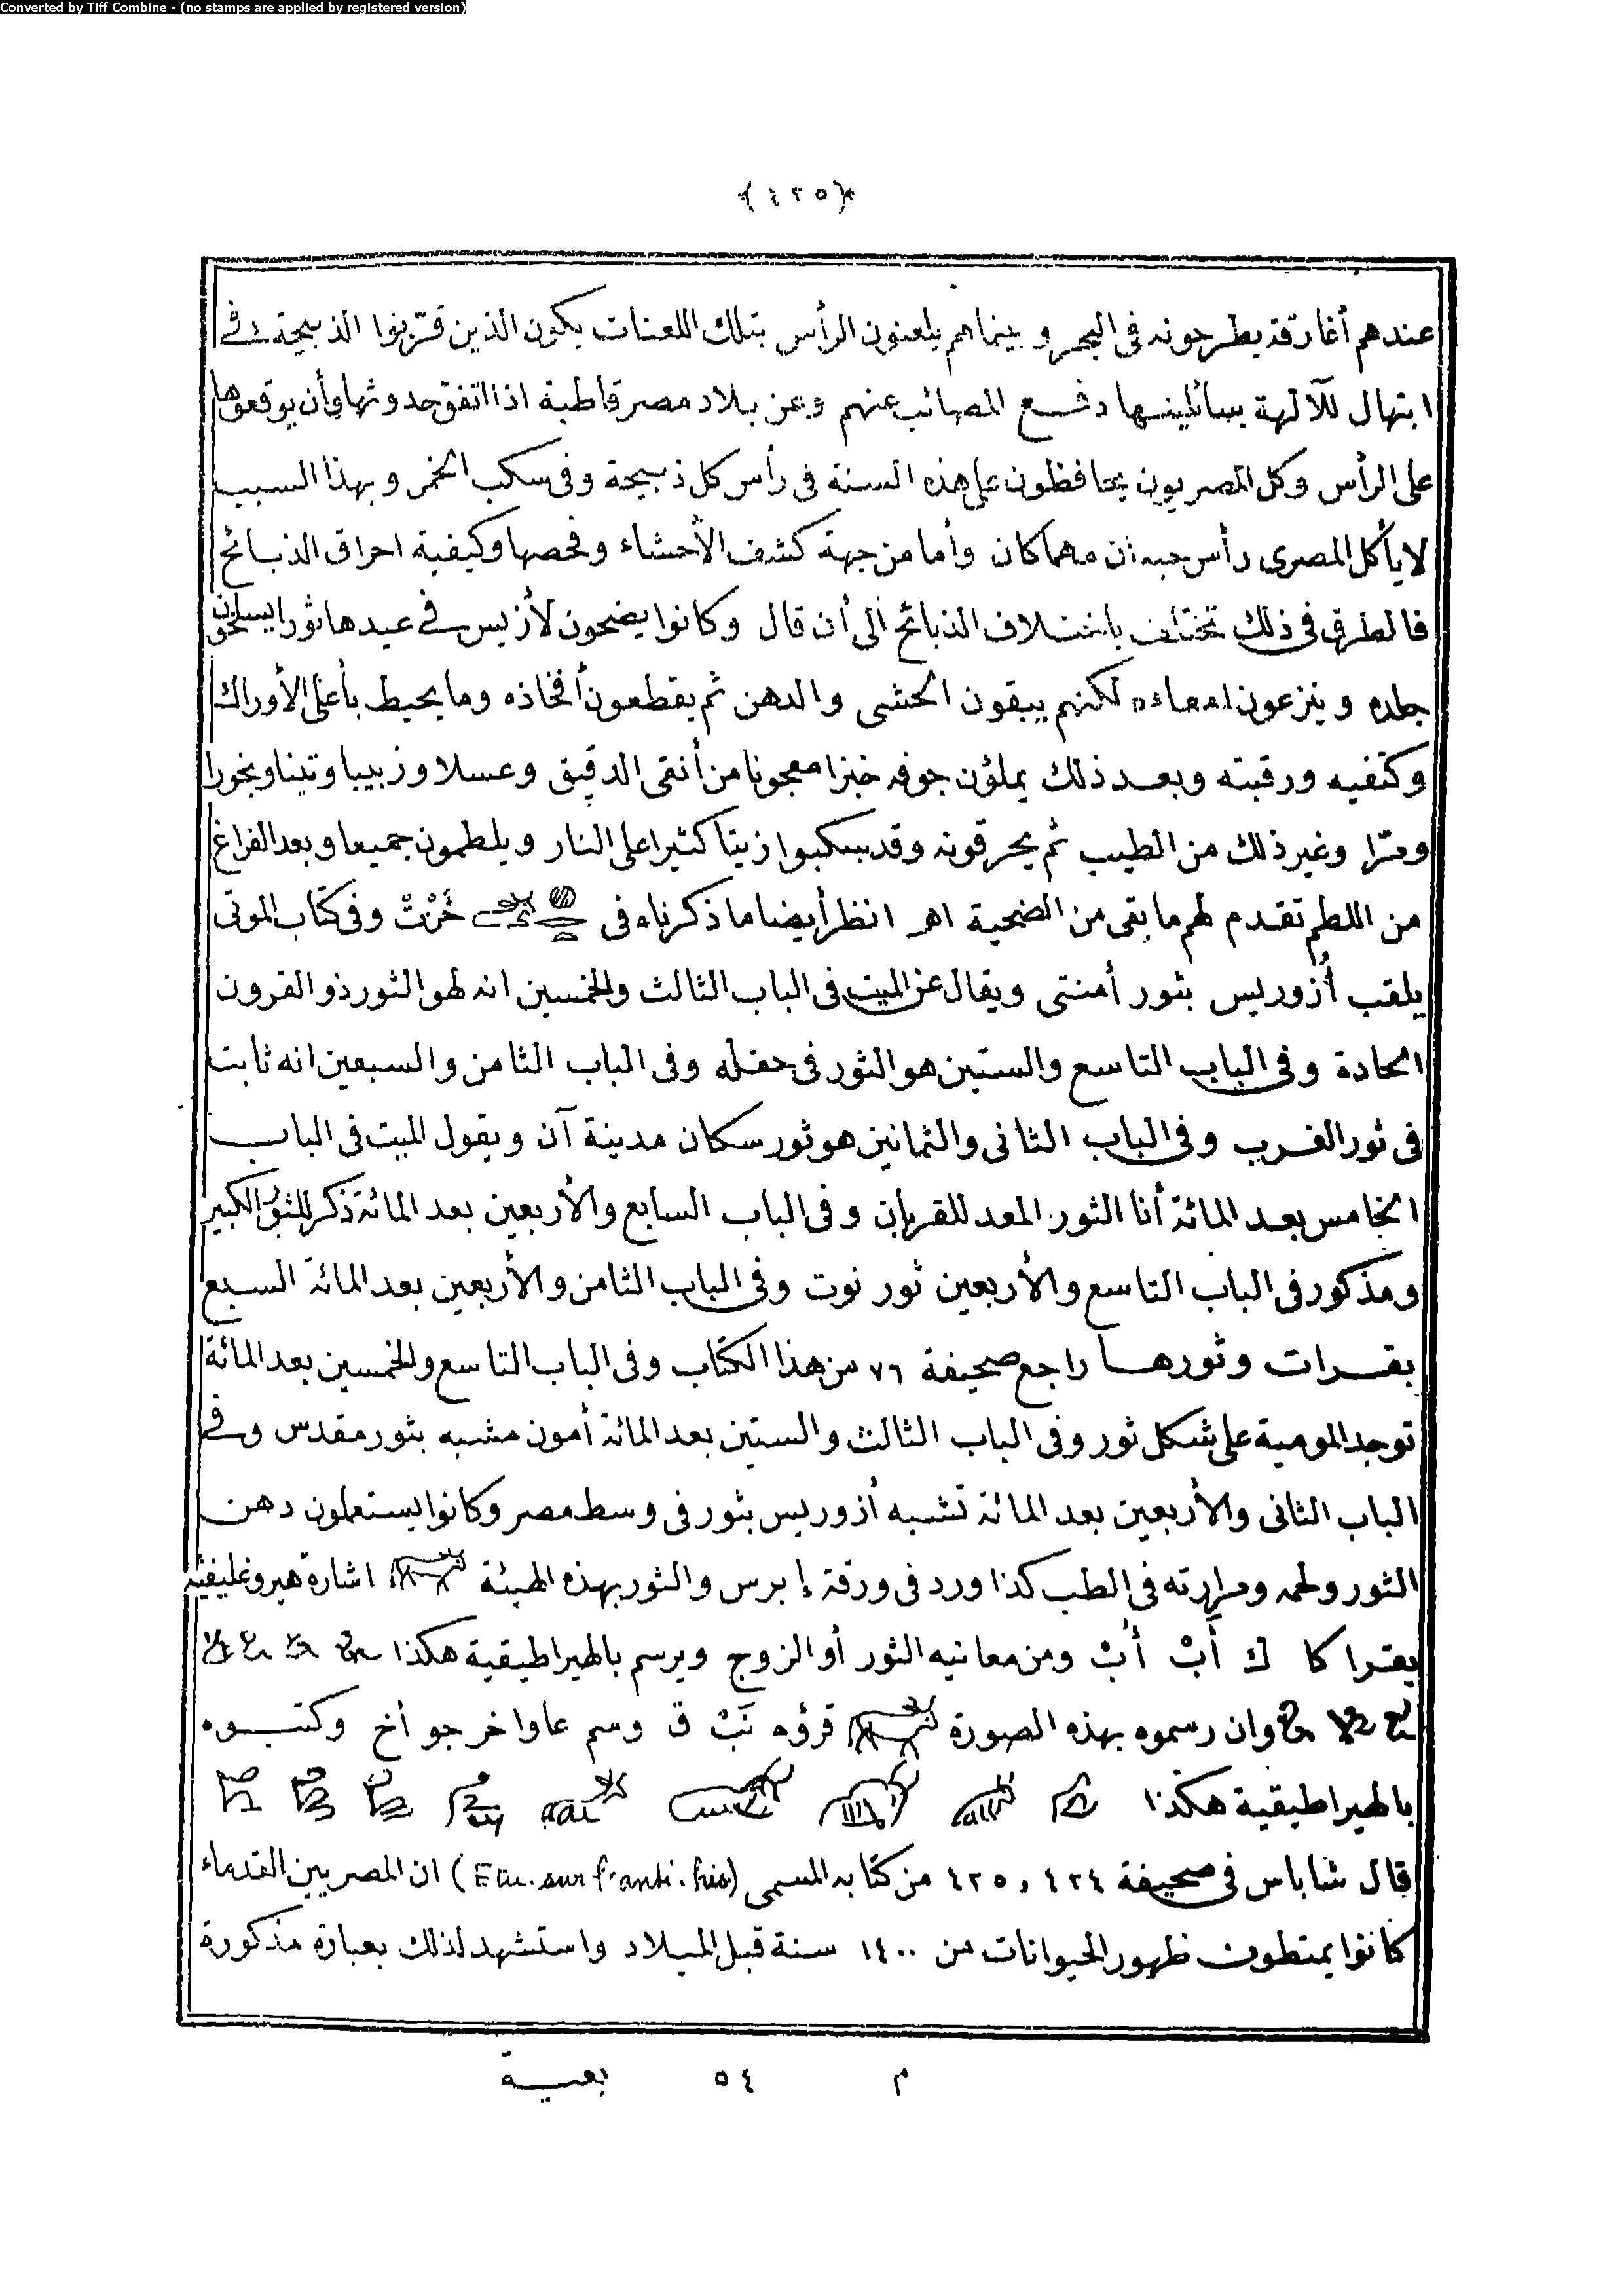 Converted by Tiff Combine - (no stamps are applied by registered version)
﴿٤٢٥﴾
عندهم أغارقة يطرحونه فى البحر وبينماهم يلعنون الرأس بتلك اللعنات يكون الذين قرّبوا الذبيحة فى
ابتهال للآلهة يسائلينها دفع المصائب عنهم وعن بلاد مصر قاطبة اذا اتفق حدوثها وأن يوقعوها
على الرأس وكل المصريون يحافظون على هذه السنة فى رأس كل ذبيحة وفى سكب الخمر وبهذا السبب
لا يأكل المصرى رأس حيوان مهما كان وأما من جهة كشف الأحشاء وفحصها وكيفية احراق الذبائح
فالطرق فى ذلك تختلف باختلاف الذبائح الى أن قال وكانوا يضحون لأزيس فى عيدها ثورا يسلخون
جلده وينزعون امعاءه لكنهم يبقون الحشى والدهن ثم يقطعون أفخاذه وما يحيط بأعلى الأوراك
وكتفيه ورقبته وبعد ذلك يملؤن جوفه خبزا معجونا من أنقى الدقيق وعسلا وزبيبا وتينا وبخورا
ومرّا وغير ذلك من الطيب ثم يحرقونه وقد سكبوا زيتا كثيرا على النار ويلطمون جميعا وبعد الفراغ
من اللطم تقدم لهم ما بقى من الضحية اهـ انظر أيضا ما ذكرناه فى خَرْتْ وفى كتاب الموتى
يلقب أزوريس بثور أمنتى ويقال عن الميت فى الباب الثالث والخمسين انه لهو الثور ذو القرون
الحادة وفى الباب التاسع والستين هو الثور فى حقله وفى الباب الثامن والسبعين انه ثابت
فى ثور الغرب وفى الباب الثانى والثمانين هو ثور سكان مدينة آن ويقول الميت فى الباب
الخامس بعد المائة أنا الثور المعد للقربان وفى الباب السابع والأربعين بعد المائة ذكر للثور الكبير
ومذكور فى الباب التاسع والأربعين ثور نوت وفى الباب الثامن والأربعين بعد المائة السبع
بقرات وثورها راجع صحيفة ٧٦ من هذا الكتاب وفى الباب التاسع والخمسين بعد المائة
توجد المومية على شكل ثور وفى الباب الثالث والستين بعد المائة أمون مشبه بثور مقدس وفى
الباب الثانى والأربعين بعد المائة تشبه أزوريس بثور فى وسط مصر وكانوا يستعملون دهن
الثور ولحمه ومرارته فى الطب كذا ورد فى ورقة إبرس والثور بهذه الهيئة اشارة هيروغليفية
يقرا كا ك أَبْ أُبْ ومن معانيه الثور أو الزوج ويرسم بالهيراطيقية هكذا
وان رسموه بهذه الصورة قرؤه نَبْ ق وسم عاوا خر جو أخ وكتبوه
بالهيراطيقية هكذا
قال شاباس فى صحيفة ٤٢٤ و ٤٢٥ من كتابه المسمى ان المصريين القدماء
كانوا يمتطون ظهور الحيوانات من ١٤٠٠ سنة قبل الميلاد واستشهد لذلك بعبارة مذكورة
م ٥٤ بغية